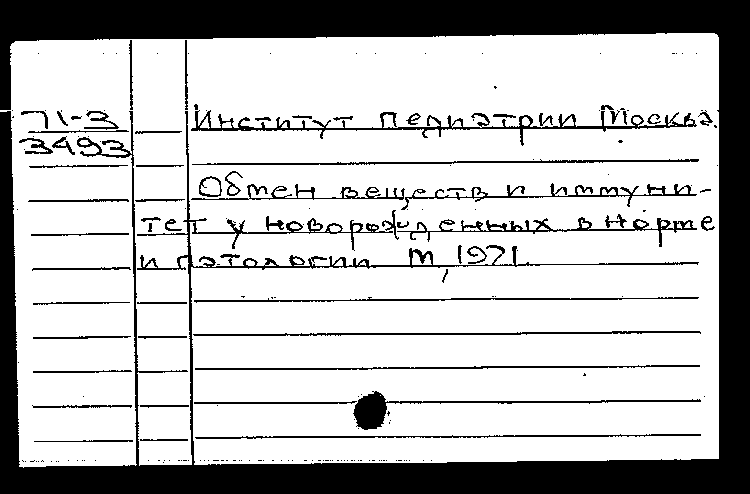 71-3
3493
Институт педиатрии Москва.
Обмен веществ и иммуни-
тет у новорожденных в норме
и патологии. М, 1971.